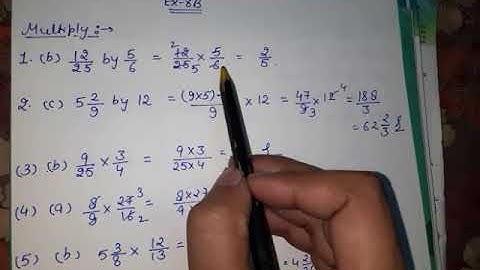 Ex-8B
Multiply:→
1. (b) 12/25 by 5/6 = 12/25 × 5/6 = 2/5
2. (c) 5 2/9 by 12 = (9×5) /9 × 12 = 47/9 × 12 = 188/3
= 62 2/3
(3) (b) 9/25 × 3/4 = 9×3/25×4 =
(4) (a) 8/9 × 27/16 = 8×27
(5) (b) 5 3/8 × 12/13 =